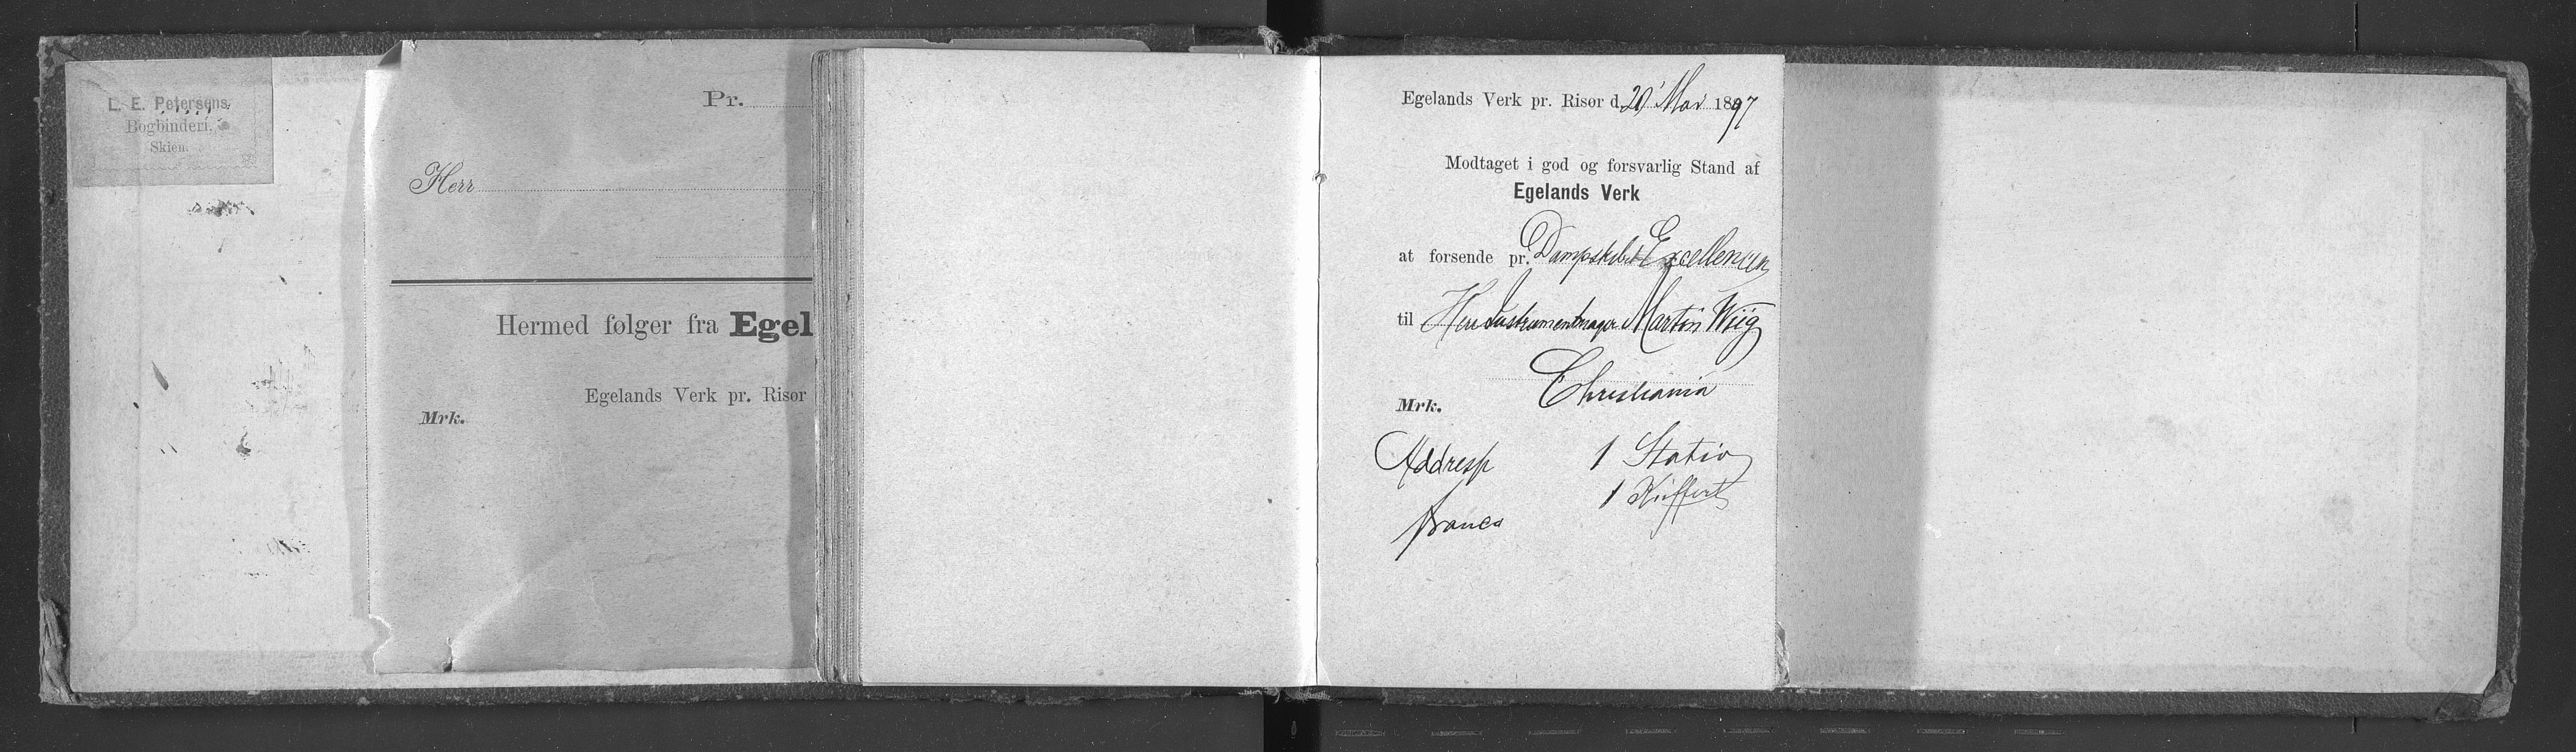 L. E. Petersens
Bogbinderi.
Skien.
Pr.
Herr
Hermed følger fra Egel
Egelands Verk pr. Risør
Mrk.
Egelands Verk pr. Risør d. 20' Mai 1897
Modtaget i god og forsvarlig Stand af
Egelands Verk
at forsende pr. Dampskibet Excellencen
til Herr Instrumentmager Martin Wiig
Christiania
Mrk.
Addresse 1 Stativ
1 Kuffert
franco